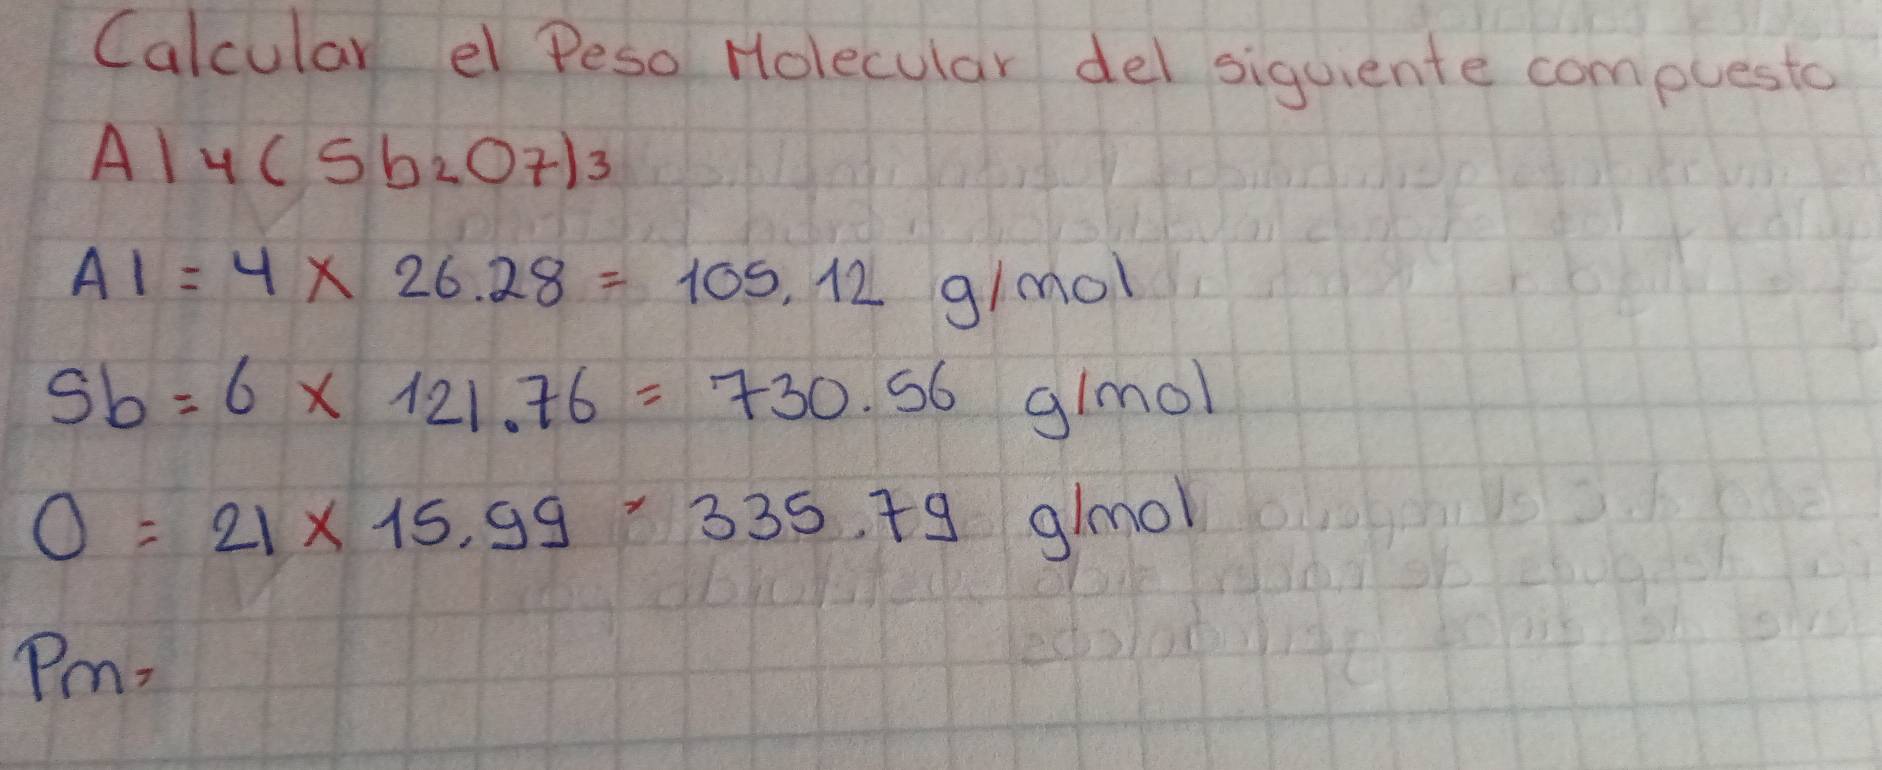 Calcular el Peso Molecular del siguiente compuesto
Al4(Sb2O7)3
Al = 4 x 26.28 = 105.12 g/mol
Sb = 6 x 121.76 = 730.56 g/mol
O = 21 x 15.99 = 335.79 g/mol
Pm=